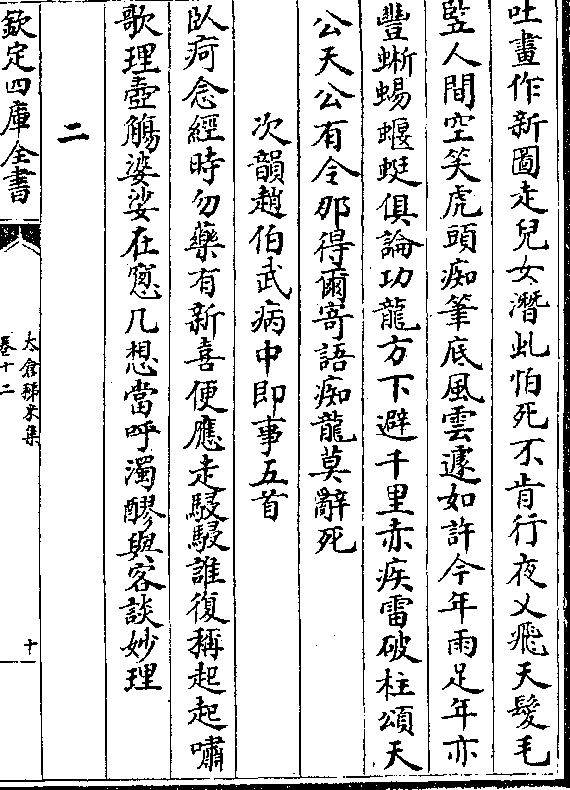 吐畫作新圖走兒女潛虬怕死不肯行夜乂飛天髮毛
竪人間空笑虎頭痴筆底風雲遽如許今年雨足年亦
豐蜥蜴蝘蜓俱論功龍方下避千里赤疾雷破柱頌天
公天公有令那得爾寄語痴龍莫辭死
次韻趙伯武病中即事五首
臥疴念經時勿藥有新喜便應走駸駸誰復稱起起嘯
歌理壺觴婆娑在窻几想當呼濁醪與客談妙理
二
欽定四庫全書
太倉稊米集
卷十二
十